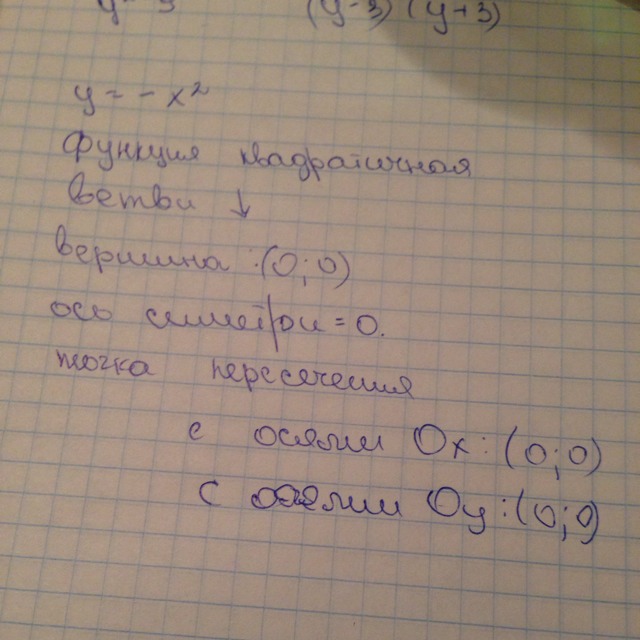 (y-3) (y+3)
y = - x²
функция квадратичная
ветви ↓
вершина : (0; 0)
ось симетрои = 0.
точка пересечения
с осями Ox : (0; 0)
с осями Oy : (0; 0)